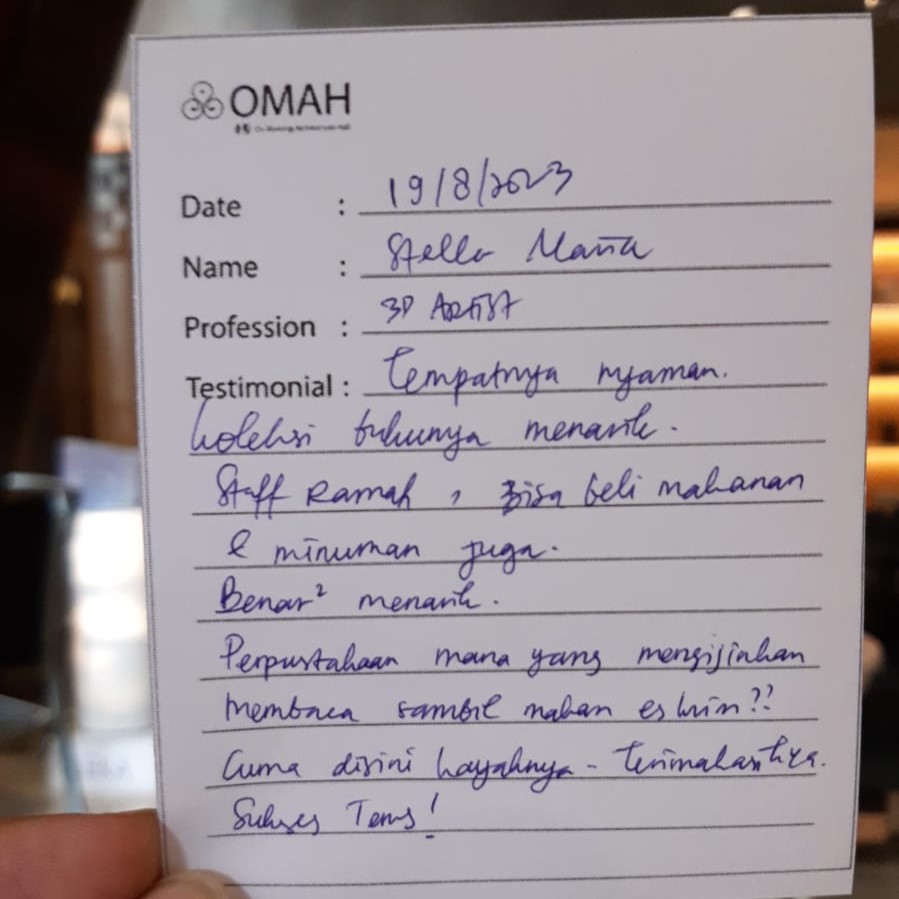 OMAH
Date : 19/8/2023
Name : Stella Maria
Profession : 3D ARTIST
Testimonial : Tempatnya nyaman.
koleksi bukunya menarik.
Staff Ramah, Bisa beli makanan
& minuman juga.
Benar² menarik.
Perpustakaan mana yang mengijinkan
membaca sambil makan es krim??
Cuma disini kayaknya - Terimakasih ya.
Sukses Terus!